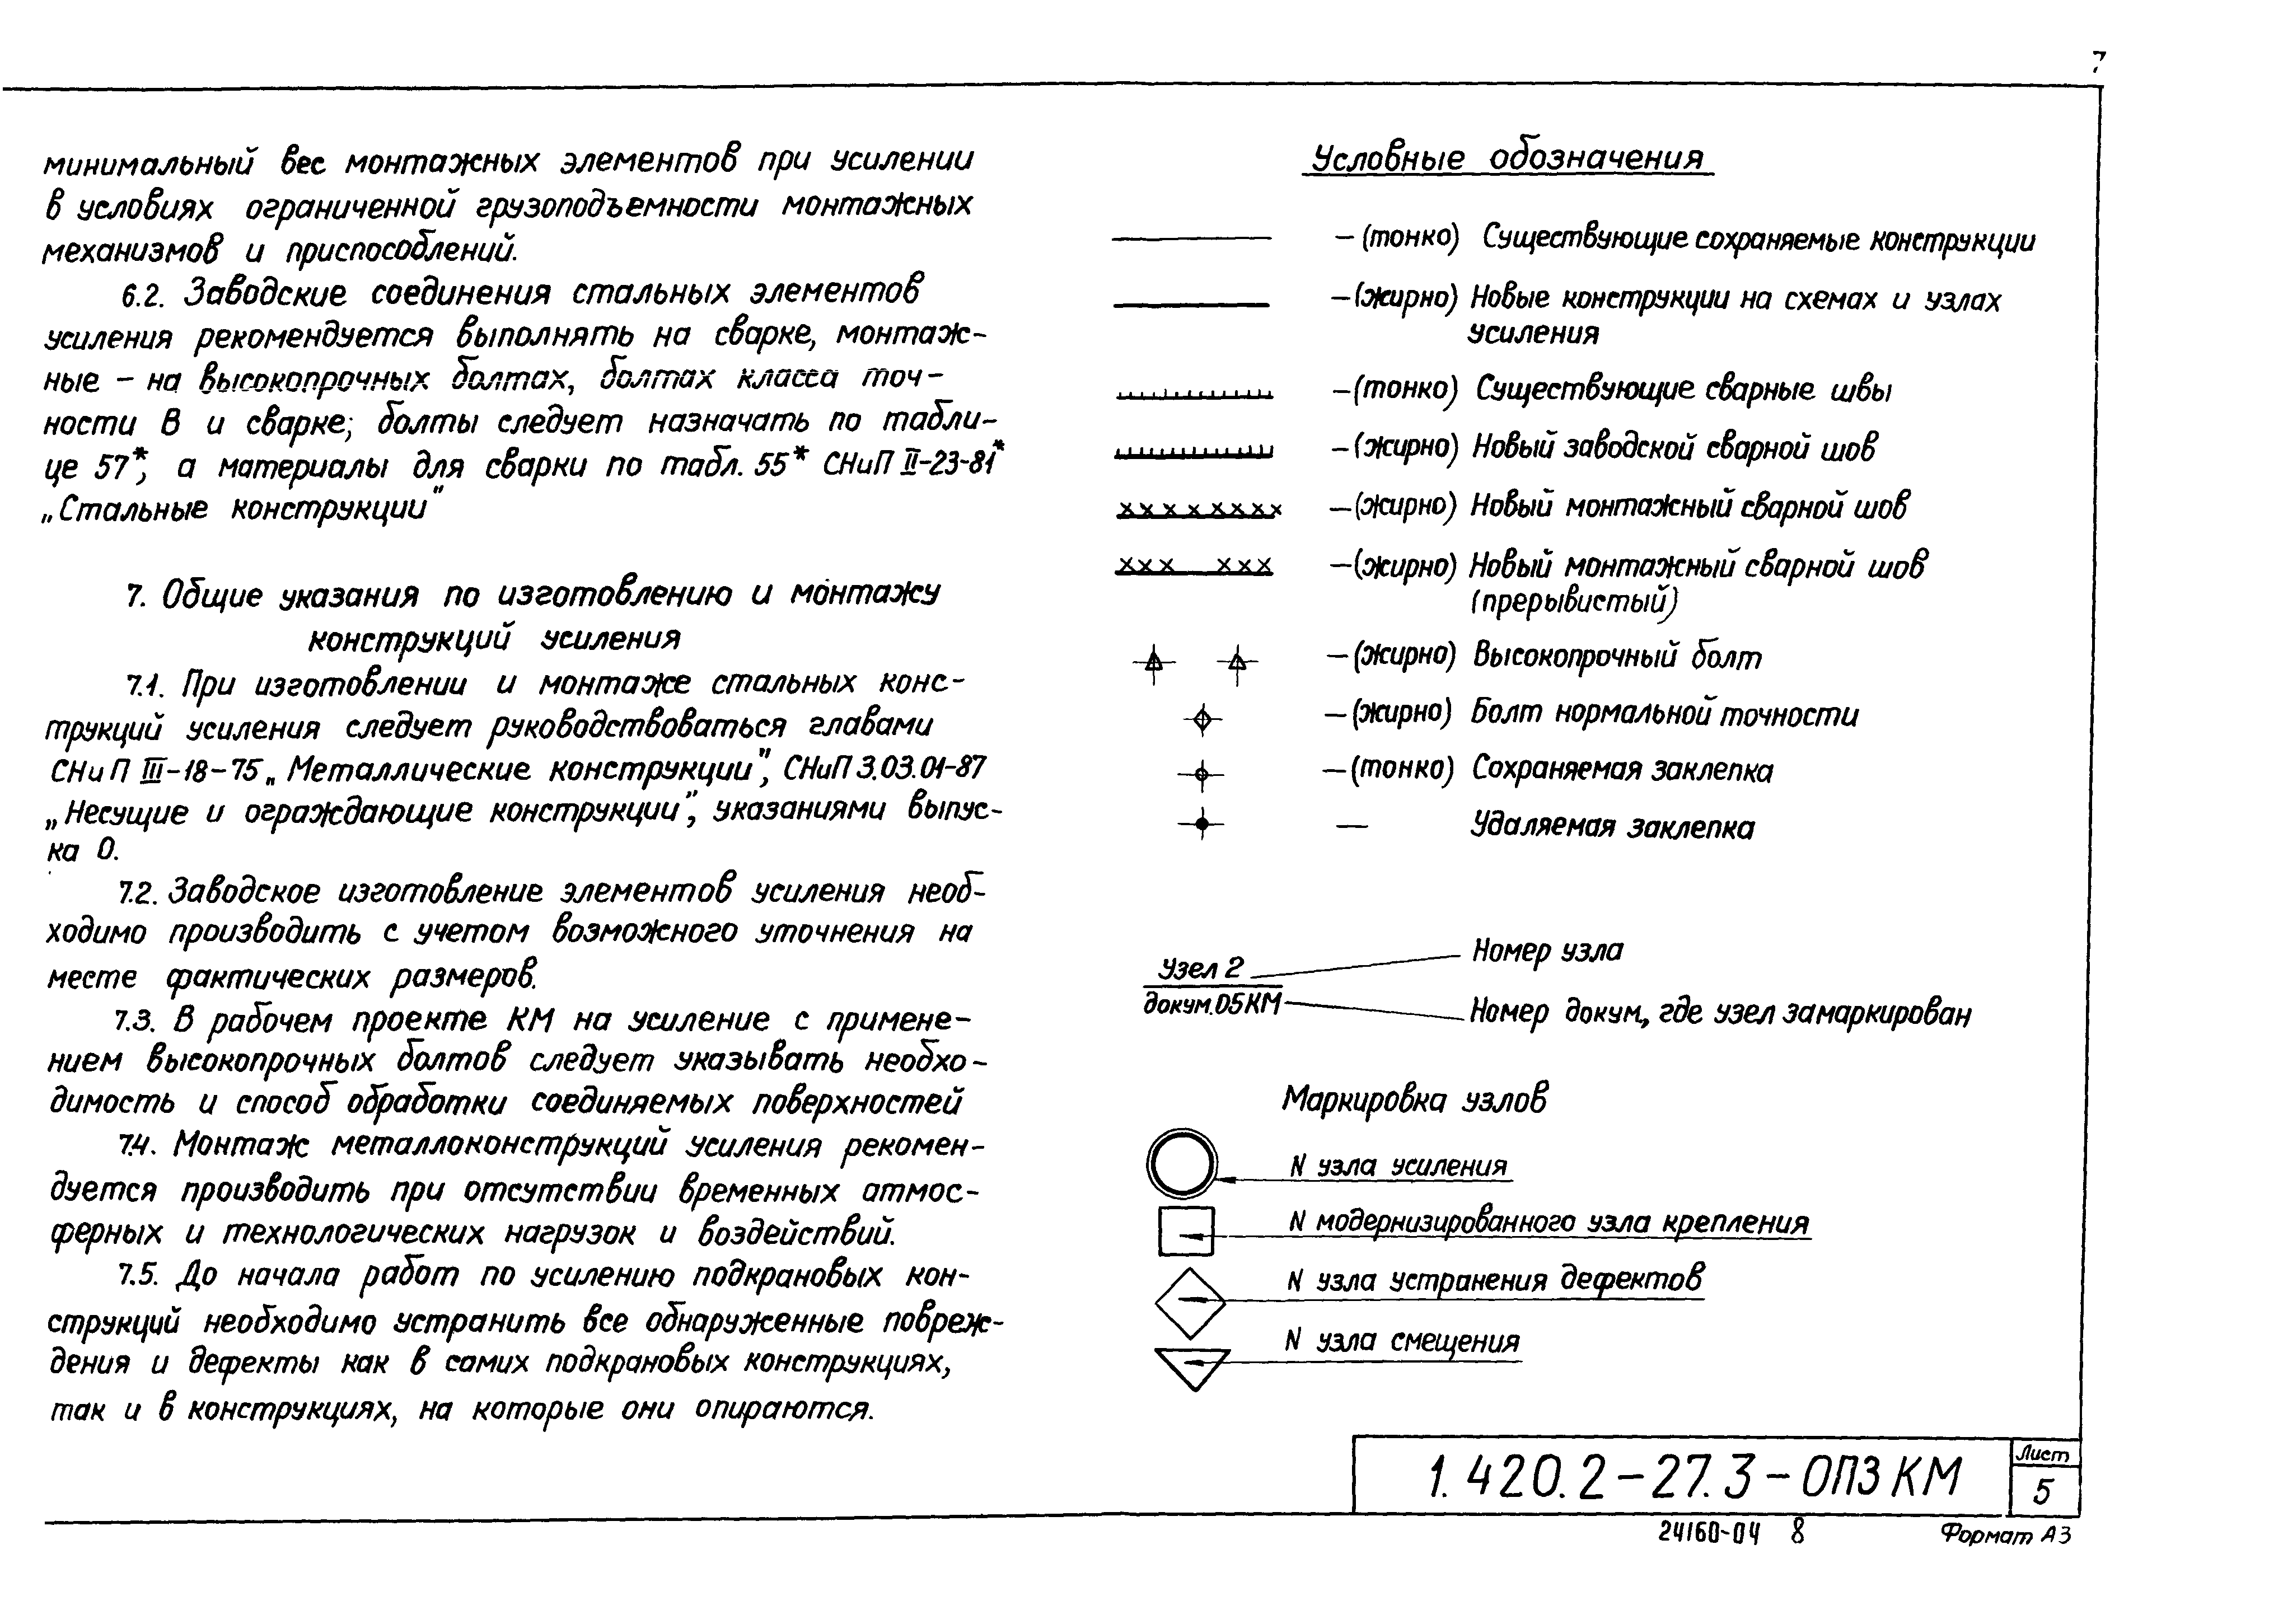 7
минимальный вес монтажных элементов при усилении
в условиях ограниченной грузоподъемности монтажных
механизмов и приспособлений.
6.2. Заводские соединения стальных элементов
усиления рекомендуется выполнять на сварке, монтаж-
ные – на высокопрочных болтах, болтах класса точ-
ности В и сварке; болты следует назначать по табли-
це 57*, а материалы для сварки по табл. 55* СНиП II-23-81*
„Стальные конструкции"
7. Общие указания по изготовлению и монтажу
конструкций усиления
7.1. При изготовлении и монтаже стальных конс-
трукций усиления следует руководствоваться главами
СНиП III-18-75 „Металлические конструкции", СНиП 3.03.01-87
„Несущие и ограждающие конструкции", указаниями выпус-
ка 0.
7.2. Заводское изготовление элементов усиления необ-
ходимо производить с учетом возможного уточнения на
месте фактических размеров.
7.3. В рабочем проекте КМ на усиление с примене-
нием высокопрочных болтов следует указывать необхо-
димость и способ обработки соединяемых поверхностей
7.4. Монтаж металлоконструкций усиления рекомен-
дуется производить при отсутствии временных атмос-
ферных и технологических нагрузок и воздействий.
7.5. До начала работ по усилению подкрановых кон-
струкций необходимо устранить все обнаруженные повреж-
дения и дефекты как в самих подкрановых конструкциях,
так и в конструкциях, на которые они опираются.
Условные обозначения
– (тонко) Существующие сохраняемые конструкции
– (жирно) Новые конструкции на схемах и узлах
усиления
– (тонко) Существующие сварные швы
– (жирно) Новый заводской сварной шов
– (жирно) Новый монтажный сварной шов
– (жирно) Новый монтажный сварной шов
(прерывистый)
– (жирно) Высокопрочный болт
– (жирно) Болт нормальной точности
– (тонко) Сохраняемая заклепка
– Удаляемая заклепка
Узел 2
докум. 05КМ
Номер узла
Номер докум, где узел замаркирован
Маркировка узлов
N узла усиления
N модернизированного узла крепления
N узла устранения дефектов
N узла смещения
1.420.2-27.3-ОПЗ КМ
Лист
5
24160-04 8
Формат А3